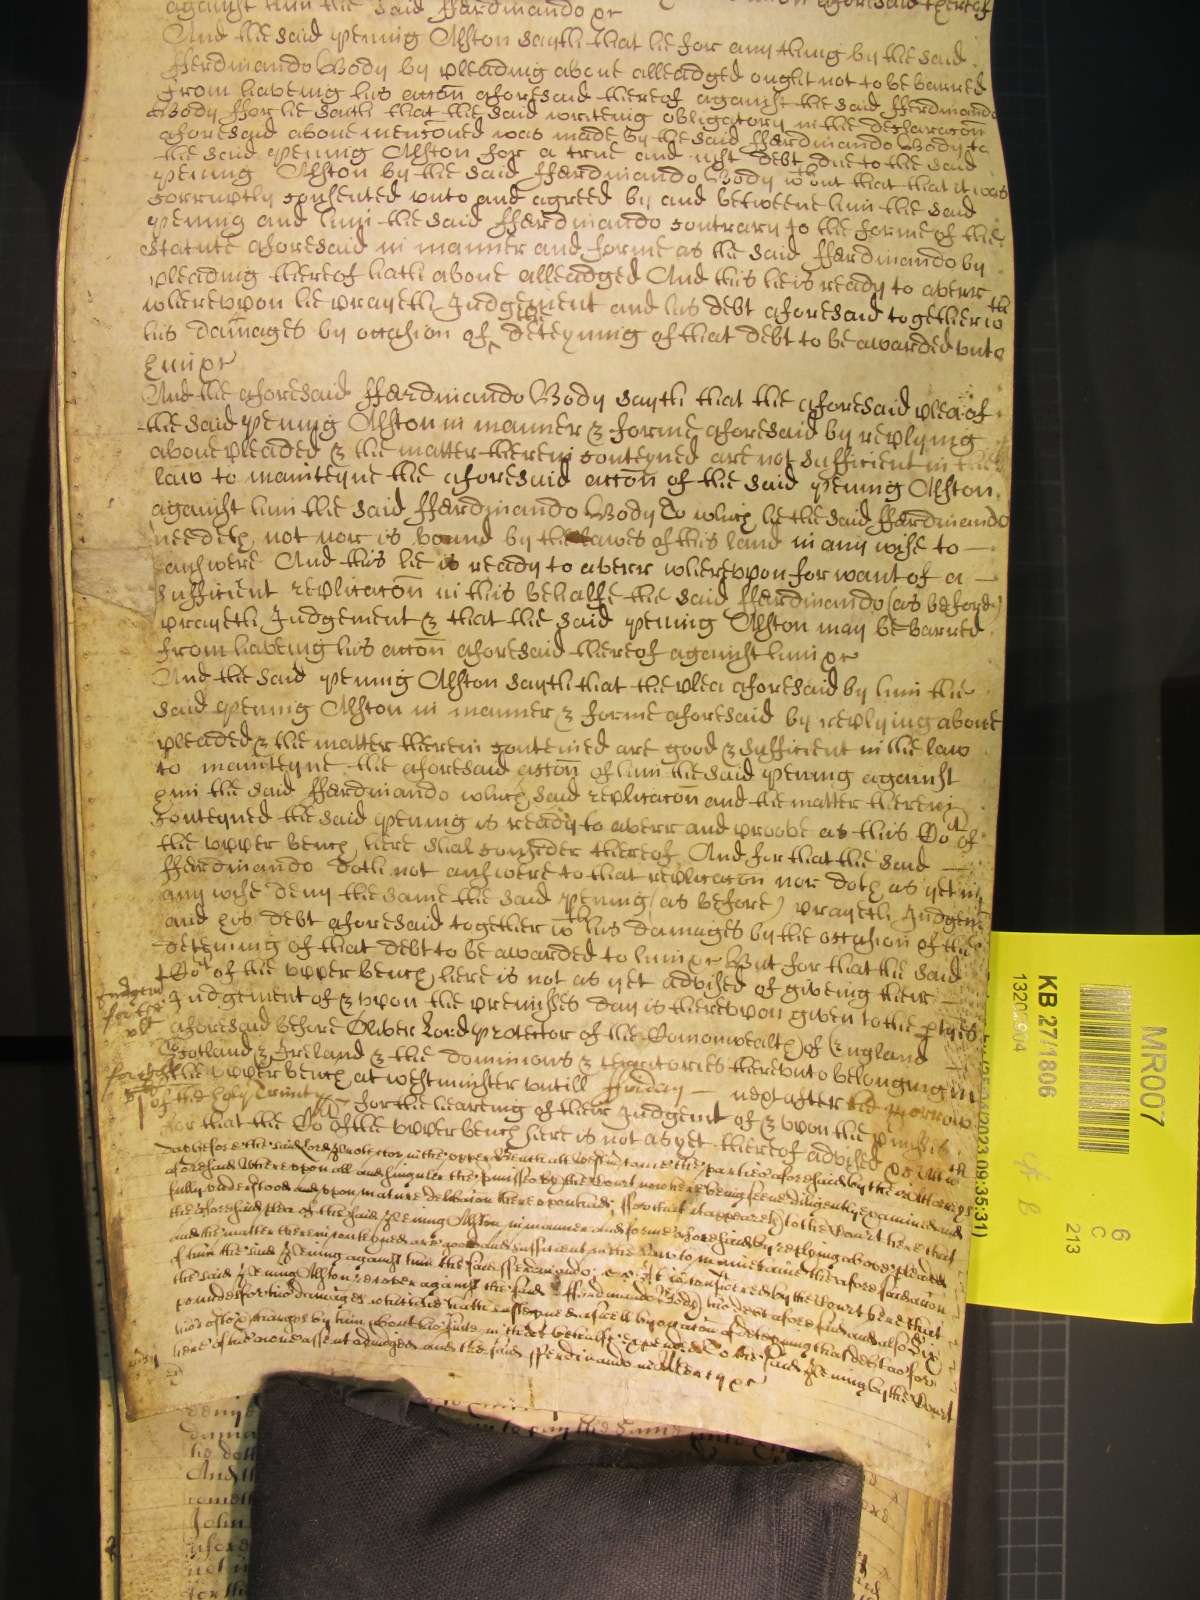 against him the said Fferdinando &c
And the said Penning Alston sayth that he for any thing by the said
Fferdinando Body by pleading above alleadged ought not to be barred
from haveing his accon aforesaid thereof against the said Fferdinando
Body Ffor he saith that the said writeing obligatory in the declaracon
aforesaid above menconed was made by the said Fferdinando Body to
the said Penning Alston for a true and just debt due to the said
Penning Alston by the said Fferdinando Body wthout that that it was
corruptly consented unto and agreed by and betweene him the said
Penning and him the said Fferdinando contrary to the forme of the
statute aforesaid in manner and forme as the said Fferdinando by
pleading thereof hath above alleadged And this he is ready to averr
whereupon he prayeth Judgement and his debt aforesaid together wth
his damages by occasion of the deteyning of that debt to be awarded unto
him &c
And the aforesaid Fferdinando Body sayth that the aforesaid plea of
the said Penning Alston in manner & forme aforesaid by replying
above pleaded & the matter therein conteyned are not sufficient in the
law to mainteyne the aforesaid accon of the said Penning Alston
against him the said Fferdinando Body To which he the said Fferdinando
needeth not nor is bound by the lawes of this land in any wise to
answere And this he is ready to averr whereupon for want of a
sufficient replicacon in this behalfe the said Fferdinando (as before)
prayeth Judgement & that the said Penning Alston may be barred
from haveing his accon aforesaid thereof against him &c
And the said Penning Alston sayth that the plea aforesaid by him the
said Penning Alston in manner & forme aforesaid by replying above
pleaded & the matter therein conteined are good & sufficient in the law
to mainteyne the aforesaid accon of him the said Penning against
him the said Fferdinando which said replicacon and the matter therein
conteyned the said Penning is ready to averr and proove as this Cort of
the upper bench here shal consider thereof And for that the said
Fferdinando doth not answere to that replicacon nor doth as yet in
any wise deny the same the said Penning (as before) prayeth Judgemt
and his debt aforesaid together wth his damages by the occasion of the
deteining of that debt to be awarded to him &c But for that the said
Cort of the upper bench here is not as yet advised of giveing their
Judgement of & upon the premisses day is thereupon given to the pties
aforesaid before Oliver Lord Protector of the Comonwealth of England
Scotland & Ireland & the dominions & territories thereunto belonging in
the upper bench at Westminster untill Ffriday next after the morrow
of the holy Trinity for the heareing of their Judgemt of & upon the pmisses
for that the Cort of the upper bench here is not as yet thereof advised
before the said Lord Protector in the upper Bench att Westm come the parties aforesaid by their Attorneys
aforesaid Whereupon all and singuler the pmisses by the Court now here being seene diligently examined and
fully understood and upon mature deliberacon thereupon had; Ffor that it appeareth to the Court here that
the aforesaid plea of the said Penning Alston in manner and forme aforesaid by replying above pleaded
and the matter therein conteyned are good and sufficient in the Law to mainetaine the aforesaid accon
of him the said Penning against him the said Fferdinando; It is considered by the Court here that
the said Penning Alston recover against the said Fferdinando Body his debt aforesaid and also six
pounds for his damages which he hath susteyned aswell by occasion of deteyning that debt as for
his costs & charges by him about his suite in that behalfe expended To the said Penning by the Court
here of his owne assent adiudged and the said Fferdinando in Mercy &c
Judgemt
for the
plt
KB 27/1806
13202904
MR007
6
C
213